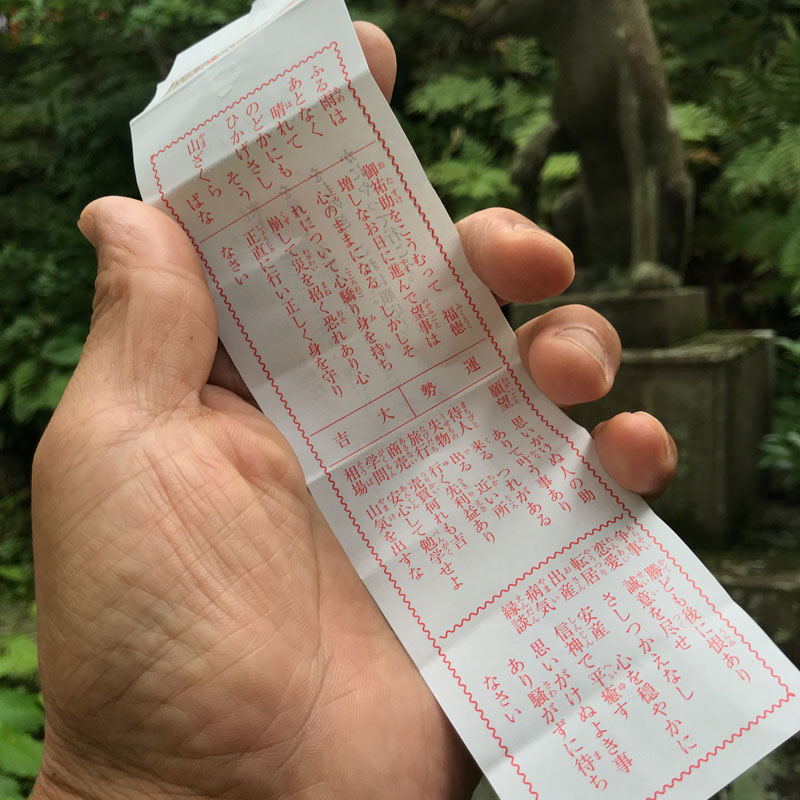 ふる雨は
あとなく
晴れて
のどかにも
ひかげさしそう
山ざくらばな
御祐助をこうむって 福徳
増しなお日に進んで望事は
心のままになる しかしそ
れについて心驕り身を持ち
崩して災を招く恐れあり心
正直に行い正しく身を守り
なさい
運勢 大吉
願望 思いがけぬ人の助
ありて叶う事ある
待人 来る つれがあり
失物 出る 近い所
旅行 行く先利益あり
商売 売買何れも吉
学問 安心して勉学せよ
相場 山気を出すな
争事 勝ども後に恨あり
恋愛 誠意を尽せ
転居 さしつかえなし
出産 安産 心を穏やかに
病気 信神で平癒す
縁談 思いがけぬよき事
あり騒がずに待ち
なさい